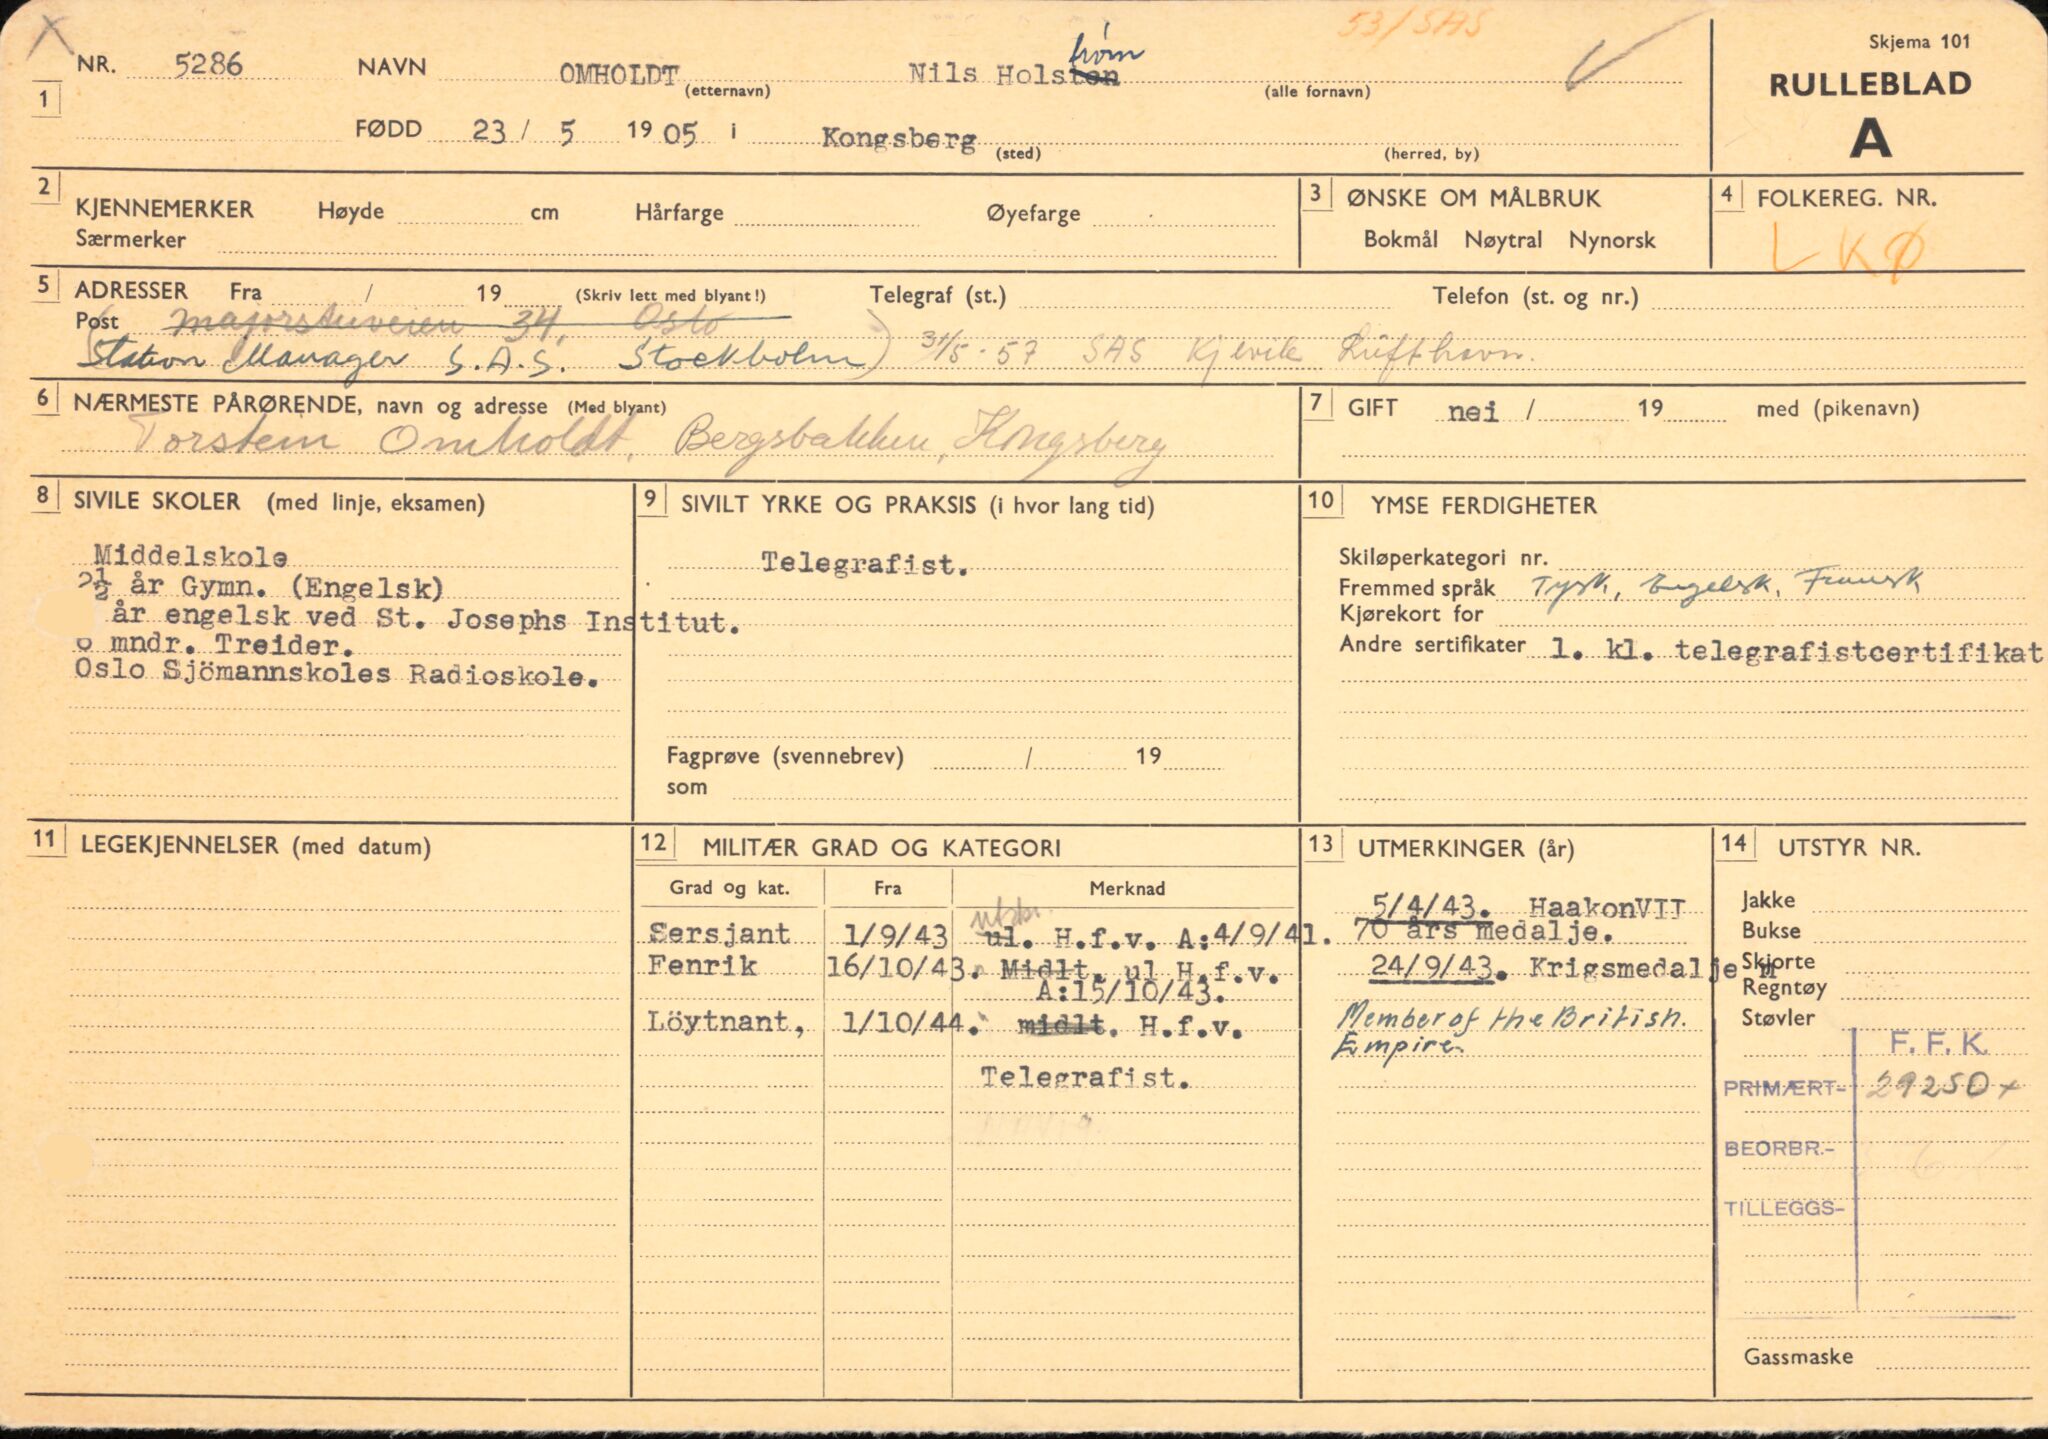 53/SAS
Skjema 101
NR. 5286 NAVN OMHOLDT (etternavn) Nils Holsten høm (alle fornavn)
RULLEBLAD
A
1
FØDD 23 / 5 1905 i Kongsberg (sted) (herred, by)
2 KJENNEMERKER Høyde cm Hårfarge Øyefarge
Særmerker
3 ØNSKE OM MÅLBRUK
Bokmål Nøytral Nynorsk
4 FOLKEREG. NR.
L K Ø
5 ADRESSER Fra / 19 (Skriv lett med blyant!) Telegraf (st.) Telefon (st. og nr.)
Post Majorstuveien 34, Oslo
(Station Manager S.A.S. Stockholm) 31/5-57 SAS Kjevik Lufthavn.
6 NÆRMESTE PÅRØRENDE, navn og adresse (Med blyant)
Torstein Omholdt, Bergsbakken, Kongsberg
7 GIFT nei / 19 med (pikenavn)
8 SIVILE SKOLER (med linje, eksamen)
Middelskole
2½ år Gymn. (Engelsk)
år engelsk ved St. Josephs Institut.
6 mndr. Treider.
Oslo Sjömannskoles Radioskole.
9 SIVILT YRKE OG PRAKSIS (i hvor lang tid)
Telegrafist.
Fagprøve (svennebrev) / 19
som
10 YMSE FERDIGHETER
Skiløperkategori nr.
Fremmed språk Tysk, Engelsk, Fransk
Kjørekort for
Andre sertifikater 1. kl. telegrafistcertifikat
11 LEGEKJENNELSER (med datum)
12 MILITÆR GRAD OG KATEGORI
Grad og kat. Fra Merknad
utskr.
Sersjant 1/9/43 ul. H.f.v. A:4/9/41.
Fenrik 16/10/43. Midlt. ul H.f.v.
A:15/10/43.
Löytnant, 1/10/44. midlt. H.f.v.
Telegrafist.
13 UTMERKINGER (år)
5/4/43. HaakonVII
70 års medalje.
24/9/43. Krigsmedalje n
Member of the British.
Empire.
14 UTSTYR NR.
Jakke
Bukse
Skjorte
Regntøy
Støvler
F. F. K.
PRIMÆRT- 29250+
BEORBR.-
TILLEGGS-
Gassmaske